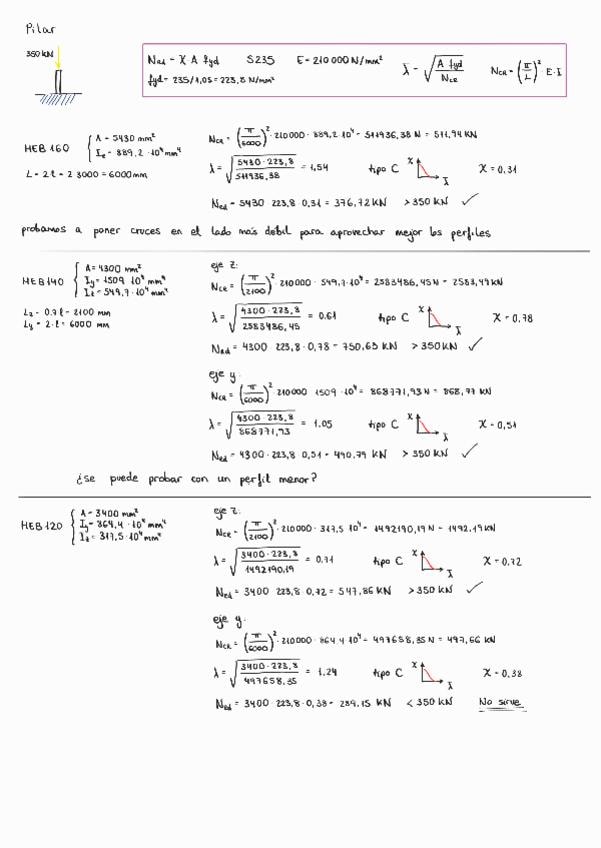 Pilar
350 kN
Nrd = χ A fyd S235 E = 210 000 N/mm² λ̄ = √(A fyd / Ncr) Ncr = (π/L)² E·I
fyd = 235/1,05 = 223,8 N/mm²
HEB 160 { A = 5430 mm²
Iz = 889,2 · 10⁴ mm⁴
L = 2·l = 2·3000 = 6000 mm
Ncr = (π/6000)² · 210000 · 889,2 · 10⁴ = 511936,38 N = 511,94 KN
λ = √(5430 · 223,8 / 511936,38) = 1,54 tipo C χ λ̄ χ = 0,31
Ned = 5430 · 223,8 · 0,31 = 376,72 KN > 350 KN ✓
probamos a poner cruces en el lado más débil para aprovechar mejor los perfiles
HEB 140 { A = 4300 mm²
Iy = 1509 · 10⁴ mm⁴
Iz = 549,7 · 10⁴ mm⁴
Lz = 0.7·l = 2100 mm
Ly = 2·l = 6000 mm
eje z:
Ncr = (π/2100)² · 210000 · 549,7 · 10⁴ = 2583486,45 N = 2583,49 KN
λ = √(4300 · 223,8 / 2583486,45) = 0.61 tipo C χ λ̄ χ = 0,78
Nrd = 4300 · 223,8 · 0,78 = 750,63 KN > 350 KN ✓
eje y:
Ncr = (π/6000)² · 210000 · 1509 · 10⁴ = 868771,93 N = 868,77 KN
λ = √(4300 · 223,8 / 868771,93) = 1.05 tipo C χ λ̄ χ = 0,51
Ned = 4300 · 223,8 · 0,51 = 490,79 KN > 350 KN ✓
¿se puede probar con un perfil menor?
HEB 120 { A = 3400 mm²
Iy = 864,4 · 10⁴ mm⁴
Iz = 317,5 · 10⁴ mm⁴
eje z:
Ncr = (π/2100)² · 210000 · 317,5 · 10⁴ = 1492190,19 N = 1492,19 KN
λ = √(3400 · 223,8 / 1492190,19) = 0.71 tipo C χ λ̄ χ = 0,72
Ned = 3400 · 223,8 · 0,72 = 547,86 KN > 350 KN ✓
eje y:
Ncr = (π/6000)² · 210000 · 864,4 · 10⁴ = 497658,35 N = 497,66 KN
λ = √(3400 · 223,8 / 497658,35) = 1.24 tipo C χ λ̄ χ = 0,38
Ned = 3400 · 223,8 · 0,38 = 289,15 KN < 350 KN No sirve